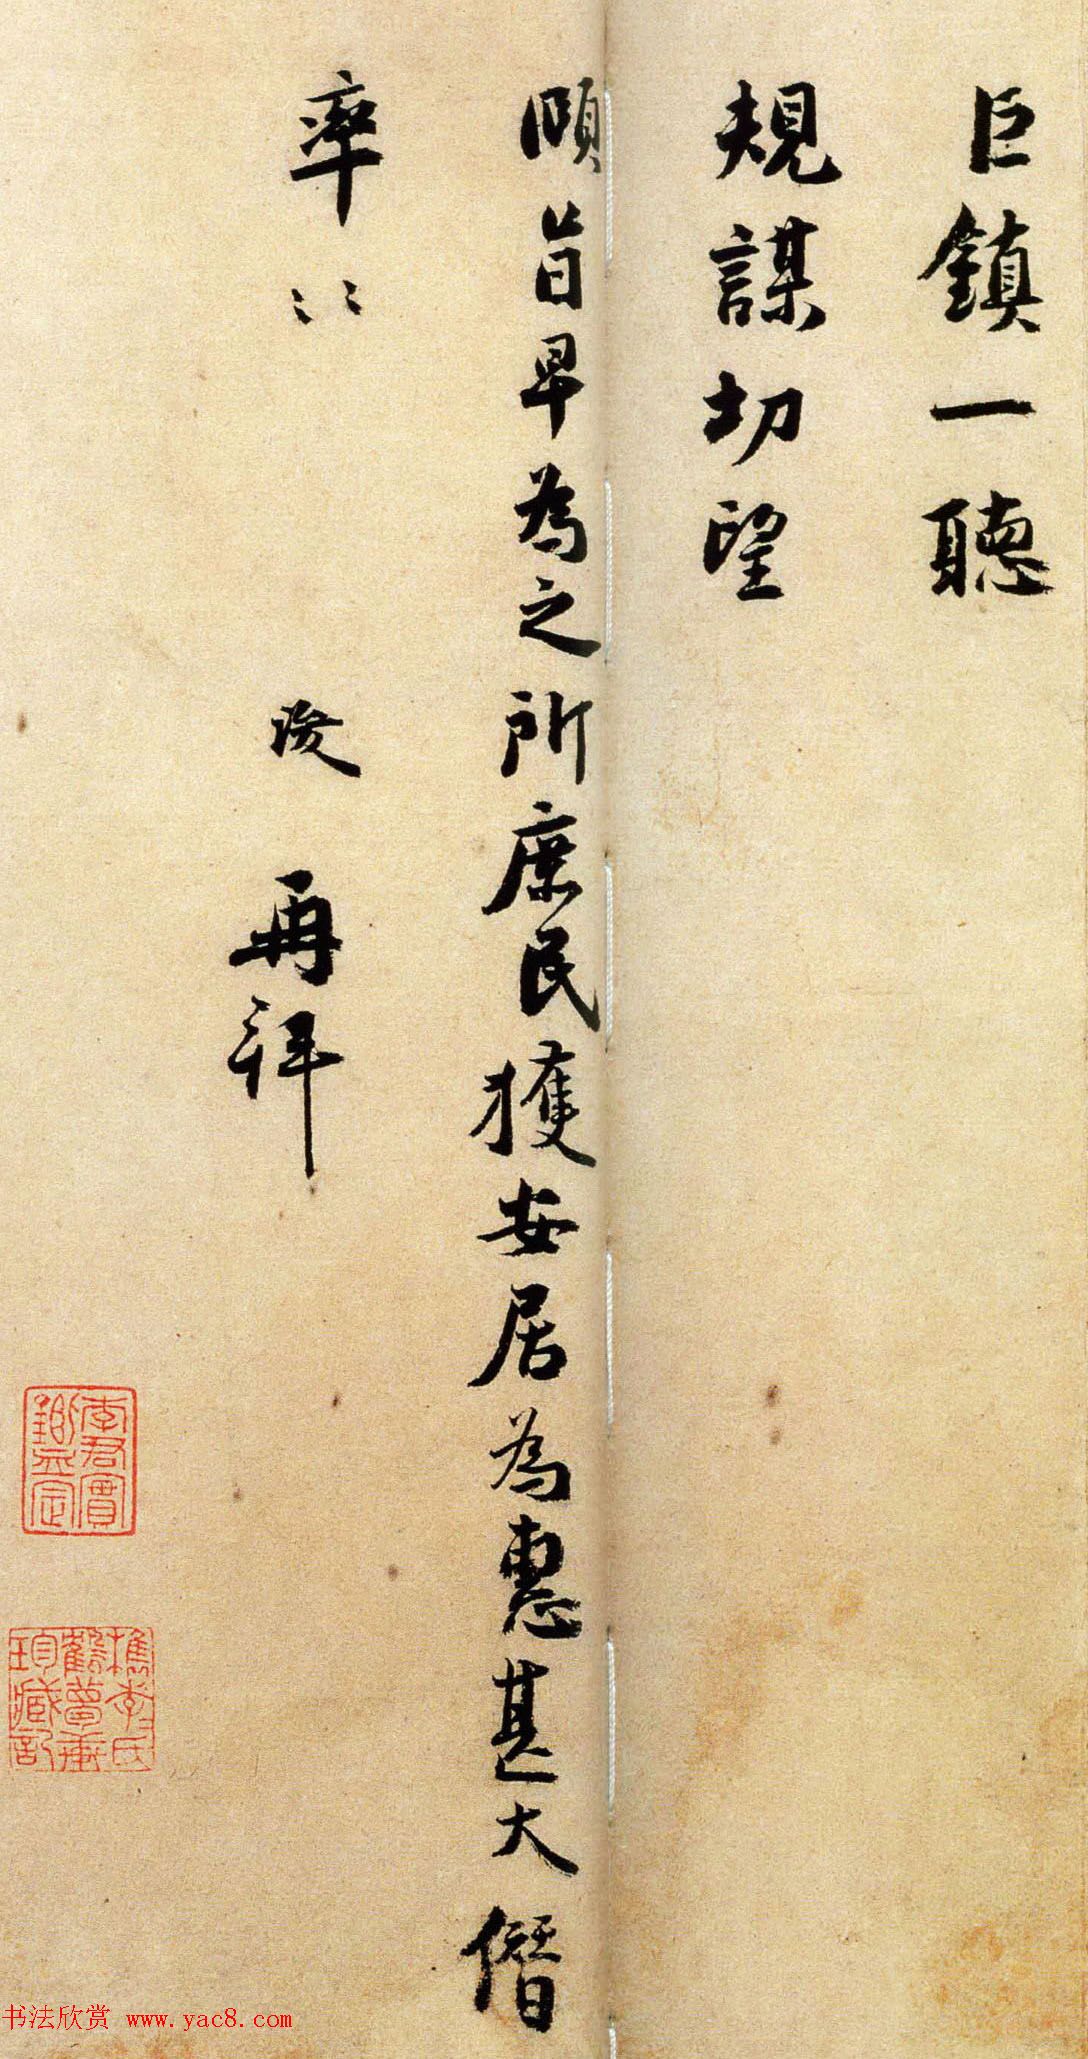 巨鎮一聽
規謀切望
頤旨早為之所庶民獲安居為惠甚大僭
率〻
浚再拜
李君實鑑定
檇李氏鶴夢軒珍藏記
书法欣赏 www.yac8.com